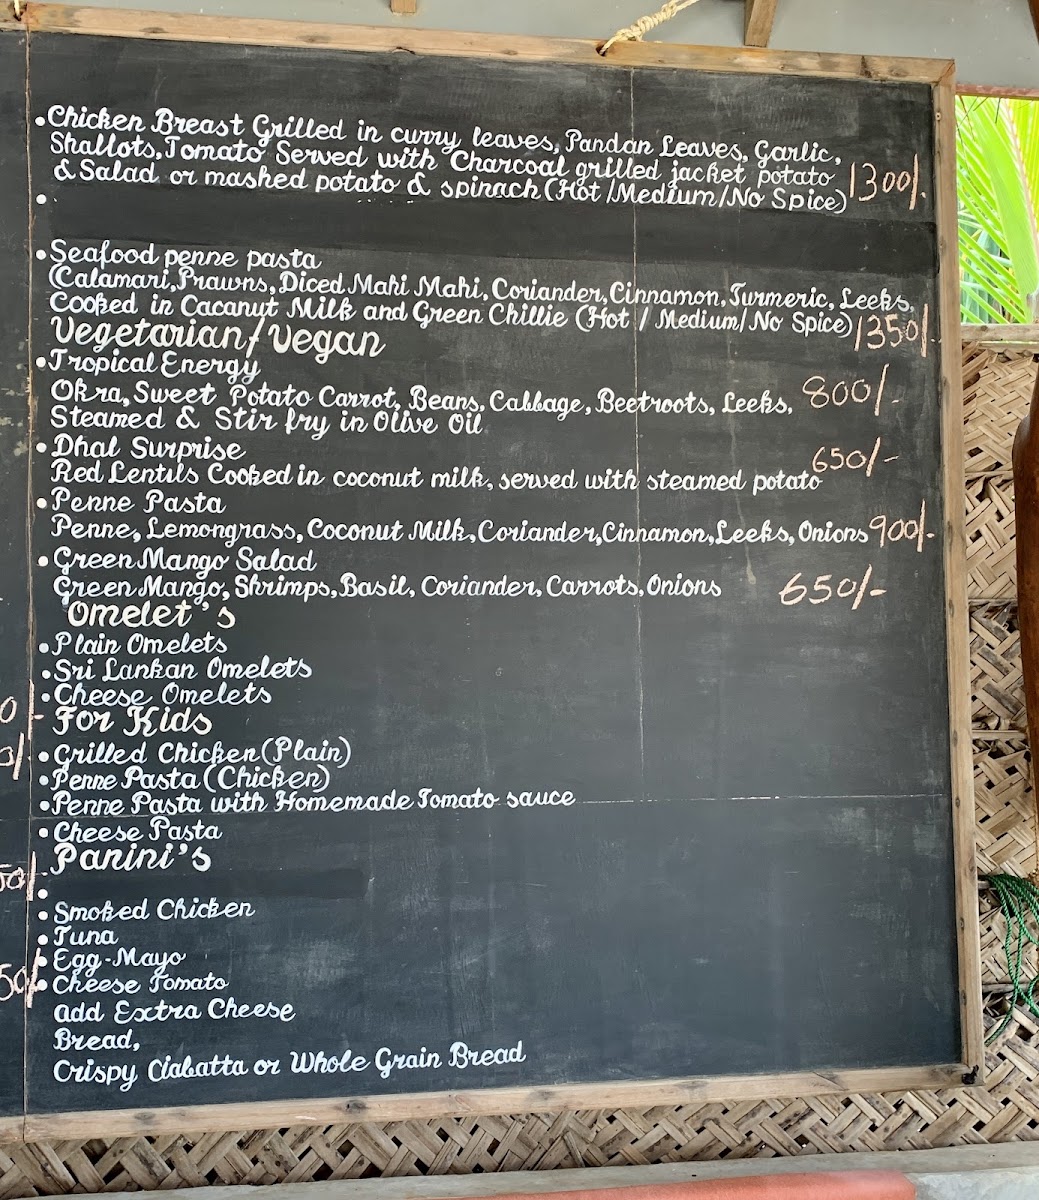 •Chicken Breast Grilled in curry leaves, Pandan Leaves, Garlic,
Shallots, Tomato Served with Charcoal grilled jacket potato
& Salad or mashed potato & spinach (Hot /Medium/No Spice) 1300/-
•
•Seafood penne pasta
(Calamari, Prawns, Diced Mahi Mahi, Coriander, Cinnamon, Turmeric, Leeks,
Cooked in Cacanut Milk and Green Chillie (Hot / Medium/No Spice) 1350/-
Vegetarian/Vegan
•Tropical Energy
Okra, Sweet Potato Carrot, Beans, Cabbage, Beetroots, Leeks, 800/-
Steamed & Stir fry in Olive Oil
•Dhal Surprise
Red Lentils Cooked in coconut milk, served with steamed potato 650/-
•Penne Pasta
Penne, Lemongrass, Coconut Milk, Coriander, Cinnamon, Leeks, Onions 900/-
•Green Mango Salad
Green Mango, Shrimps, Basil, Coriander, Carrots, Onions 650/-
Omelet's
•Plain Omelets
•Sri Lankan Omelets
•Cheese Omelets
For Kids
•Grilled Chicken (Plain)
•Penne Pasta (Chicken)
•Penne Pasta with Homemade Tomato sauce
•Cheese Pasta
Panini's
•
•Smoked Chicken
•Tuna
•Egg-Mayo
•Cheese Tomato
add Extra Cheese
Bread,
Crispy Ciabatta or Whole Grain Bread